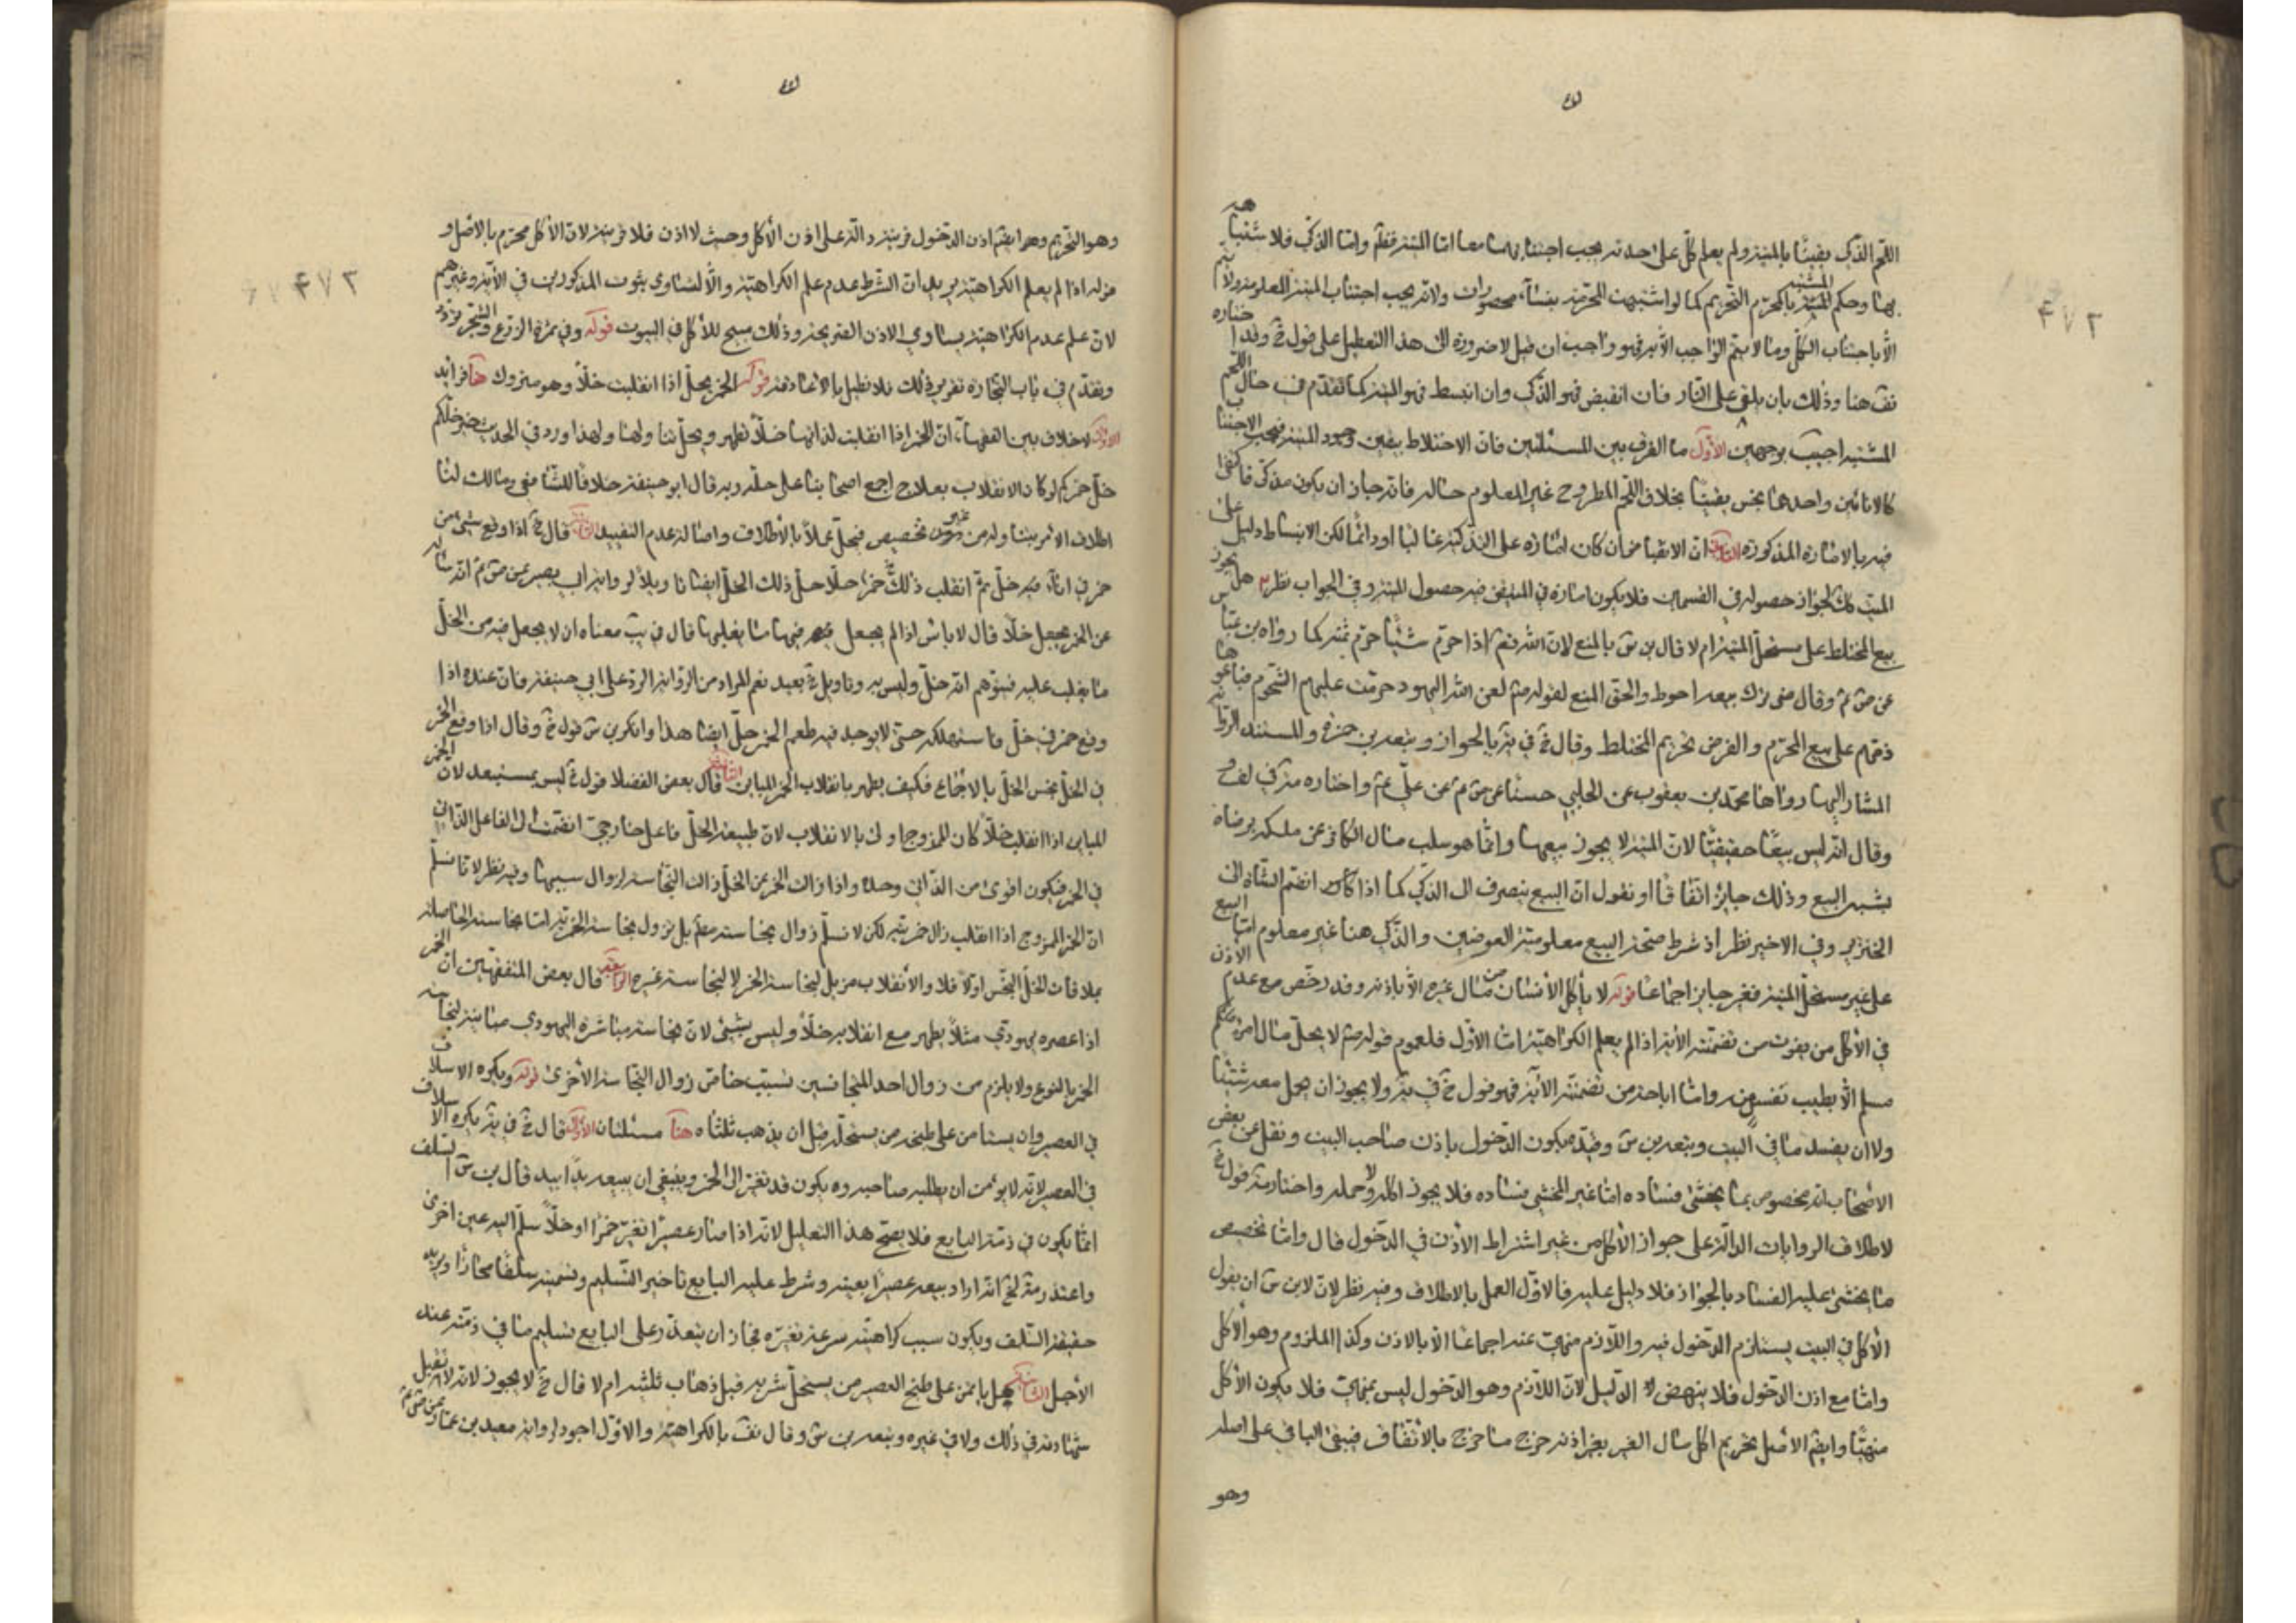 اللحم الذكي يقينًا بالميتة ولم يعلم كلّ على حدته يجب اجتنابهما معا امّا الميتة فظم وامّا الذكي فلاشتباهه
بها وحكم المشتبه بالمحرّم التحريم كما لو اشتبهت المحرّمة بنساء محصورات ولانه يجب اجتناب الميتة المعلومة ولا يتم
الّا باجتناب الكلّ وما لا يتم الواجب الّا به فهو واجب ان قيل لا ضرورة الى هذا التعطيل على قول خ وقد اختاره
نف هنا وذلك بان يلقى على النار فان انقبض فهو الذكي وان انبسط فهو الميتة كما تقدّم في حال اللحم
المشتبه اجيب بوجهين الأوّل ما الفرق بين المسئلتين فان الاختلاط يقين وجود الميتة فيجب الاجتناب
كالانائين واحدهما نجس يقينًا بخلاف اللحم المطروح غير المعلوم حاله فانه جاز ان يكون مذكّى فاكتفى
فيه بالامارة المذكورة الثاني انّ الانقباض وان كان امارة على التذكية غالبا او دائمًا لكن الانبساط دليل على
الميتة لجواز حصوله في القسمين فلا يكون امارة في المتيقن فيه حصول الميتة وفي الجواب نظر هل يجوز
بيع المختلط على مستحلّ الميتة ام لا قال بن س بالمنع لانّ الله تعم اذا حرّم شيئًا حرّم ثمنه كما رواه بن عباس
عن ص م وقال متى ترك بيعه احوط والحق المنع لقوله صم لعن الله اليهود حرّمت عليهم الشحوم فباعوها
ذمّهم على بيع المحرّم والفرض تحريم المختلط وقال خ في ية بالجواز وتبعه بن حمزة والمستند الرواية
المشار اليها رواها محمد بن يعقوب عن الحلبي حسنًا عن ص م عن علي عم واختاره مة في لف و
وقال انه ليس بيعًا حقيقيًا لانّ الميتة لا يجوز بيعها وانّما هو سلب مال الكافر عن ملكه برضاه
يشبه البيع وذلك جايز اتفاقًا او نقول انّ البيع ينصرف الى الذكي كما اذا كان انضم الشاة الى
الخنزير وفي الاخير نظر اذ شرط صحّة البيع معلوميّة العوضين والذّكي هنا غير معلوم امّا البيع
على غير مستحلّ الميتة فغير جايز اجماعًا قوله لا يأكل الأنسان من مال غيره الّا باذنه وقد رخّص مع عدم الاذن
في الأكل من بيوت من تضمّنته الآية اذا لم يعلم الكراهية امّا الاوّل فلعموم قوله صم لا يحلّ مال امرء
مسلم الّا بطيب نفس منه وامّا اباحة من تضمنته الآية فهو قول خ في ية ولا يجوز ان يحمل معه شيئًا
ولا ان يفسد ما في البيت وتبعه بن س وقيّده بكون الدّخول باذن صاحب البيت ونقل عن بعض
الاصحاب انه مخصوص بما يخشى فساده امّا غير المخشي فساده فلا يجوز اكله ولا حمله واختار مة قول خ
لاطلاق الروايات الدالّة على جواز الأكل من غير اشتراط الأذن في الدّخول قال وامّا تخصيص
ما يخشى عليه الفساد بالجواز فلا دليل عليه فالاوّل العمل بالاطلاق وفيه نظر لانّ لابن س ان يقول
الأكل في البيت يستلزم الدخول فيه واللازم منهيّ عنه اجماعًا الّا بالاذن وكذا الملزوم وهو الأكل
وامّا مع اذن الدّخول فلا ينهض الدّليل لانّ اللازم وهو الدّخول ليس بمنهيّ فلا يكون الأكل
منهيًّا وايضًا الاصل تحريم اكل مال الغير بغير اذنه خرج ما خرج بالأتفاق فيبقى الباقي على اصله
وهو
وهو التحريم وهو ايضًا اذن الدّخول قرينة دالّة على اذن الأكل وحيث لا اذن فلا قرينة لانّ الأكل محرّم بالاصل و
قوله اذا لم يعلم الكراهية يريد انّ الشرط عدم علم الكراهية والّا لتساوي بيوت المذكورين في الآية وغيرهم
لانّ علم عدم الكراهية يساوي الاذن الصريحة وذلك مبيح للأكل في البيوت قوله وفي ثمرة الزرع والشجر تردّد
وتقدّم في باب التجارة تقرير ذلك فلا نطيل بالاعادة قوله الخمر يحلّ اذا انقلبت خلّاً وهو متروك هنا فوايد
الأولى لا خلاف بين الفقهاء انّ الخمر اذا انقلبت لذاتها خلّاً تطهر ويحلّ بنا ولهذا ورد في الحديث خير خلّكم
خلّ خمركم لو كان الانقلاب بعلاج اجمع اصحابنا على حلّه وبه قال ابو حنيفة خلافًا للشافعي ومالك لنا
اطلاق الاثر بتناوله من غير تخصيص فيحلّ عملًا بالأطلاق واصالة عدم التقييد الثانية قال خ اذا وقع شئ من
خمر في اناء فيه خلّ ثمّ انقلب ذلك خمر خلّا حلّ ذلك الخلّ ايضا نا ويلا لرواية ابي بصير عن ص م انه سأله
عن الخمر يجعل خلّاً قال لا باس اذا لم يجعل فيها ما يغلبها قال في يب معناه ان لا يجعل فيه من الخلّ
ما يغلب عليه فيتوهم انه خلّ وليس به وتاويل خ بعيد نعم المراد من الرواية الردّ على ابي حنيفة فان عنده اذا
وقع خمر في خلّ فاستهلكه حتى لا يوجد فيه طعم الخمر حلّ ايضا هذا وانكر بن س قول خ وقال اذا وقع الخمر
في الخلّ نجس الخلّ بالاجماع فكيف يطهر بانقلاب الخمر المباين الثالثة قال بعض الفضلا قول خ ليس بمستبعد لانّ الخمر
المباين اذا انقلب خلّاً كان الممزوج اولى بالانقلاب لانّ طبيعة الخلّ فاعل خارجيّ انضمت الى الفاعل الذاتي
في الخمر فيكون اقوى من الذاتي وحده واذا زالت الخمر عن الخلّ زالت النجاسة لزوال سببها وفيه نظر لانّا نسلّم
انّ الخمر الممزوج اذا انقلب زال خمريته لكن لا نسلّم زوال نجاسته مط بل تزول نجاسة الخمرية امّا نجاسة الحاصلة
بملاقات الخلّ النجس اولًا فلا والأنقلاب مزيل لنجاسة الخمر لا لنجاسة غيره الرابعة قال بعض المتفقهين انّ الخمر
اذا عصره يهودي مثلًا يطهر مع انقلابه خلّاً وليس بشئ لانّ نجاسة مباشرة اليهودي مباينة لنجاسة
الخمر بالنوع ولا يلزم من زوال احد المتجانسين بسبب خاص زوال النجاسة الأخرى قوله ويكره الاسلاف
في العصير وان يستامن على طبخه من يستحلّه قبل ان يذهب ثلثاه هنا مسئلتان الأولى قال خ في ية يكره الاسلاف
في العصير لانه لا يؤمن ان يطلبه صاحبه وه يكون قد تغيّر الى الخمر وينبغي ان يبيعه يدًا بيد قال بن س السلف
انّما يكون في ذمّة البايع فلا يصحّ هذا التعليل لانه اذا صار عصيرًا تغيّر خمرًا او خلّاً سلّم اليه عين اخرى
واعتذر مة لخ انه اراد بيعه عصيرًا بعينه وشرط عليه البايع تاخير التسليم وتسميته سلفًا مجازًا ويريد به
حقيقة السّلف ويكون سبب كراهته سرعة تغيّره فجاز ان يتعذّر على البايع تسليم ما في ذمّته عند
الأجل الثانية هل يامن على طبخ العصير من يستحلّ شربه قبل ذهاب ثلثيه ام لا قال خ لا يجوز لانه لا تقبل
شهادته في ذلك ولا في غيره وتبعه بن س وقال نف بالكراهية والاوّل اجود لرواية معوية بن عمّار عن ص م